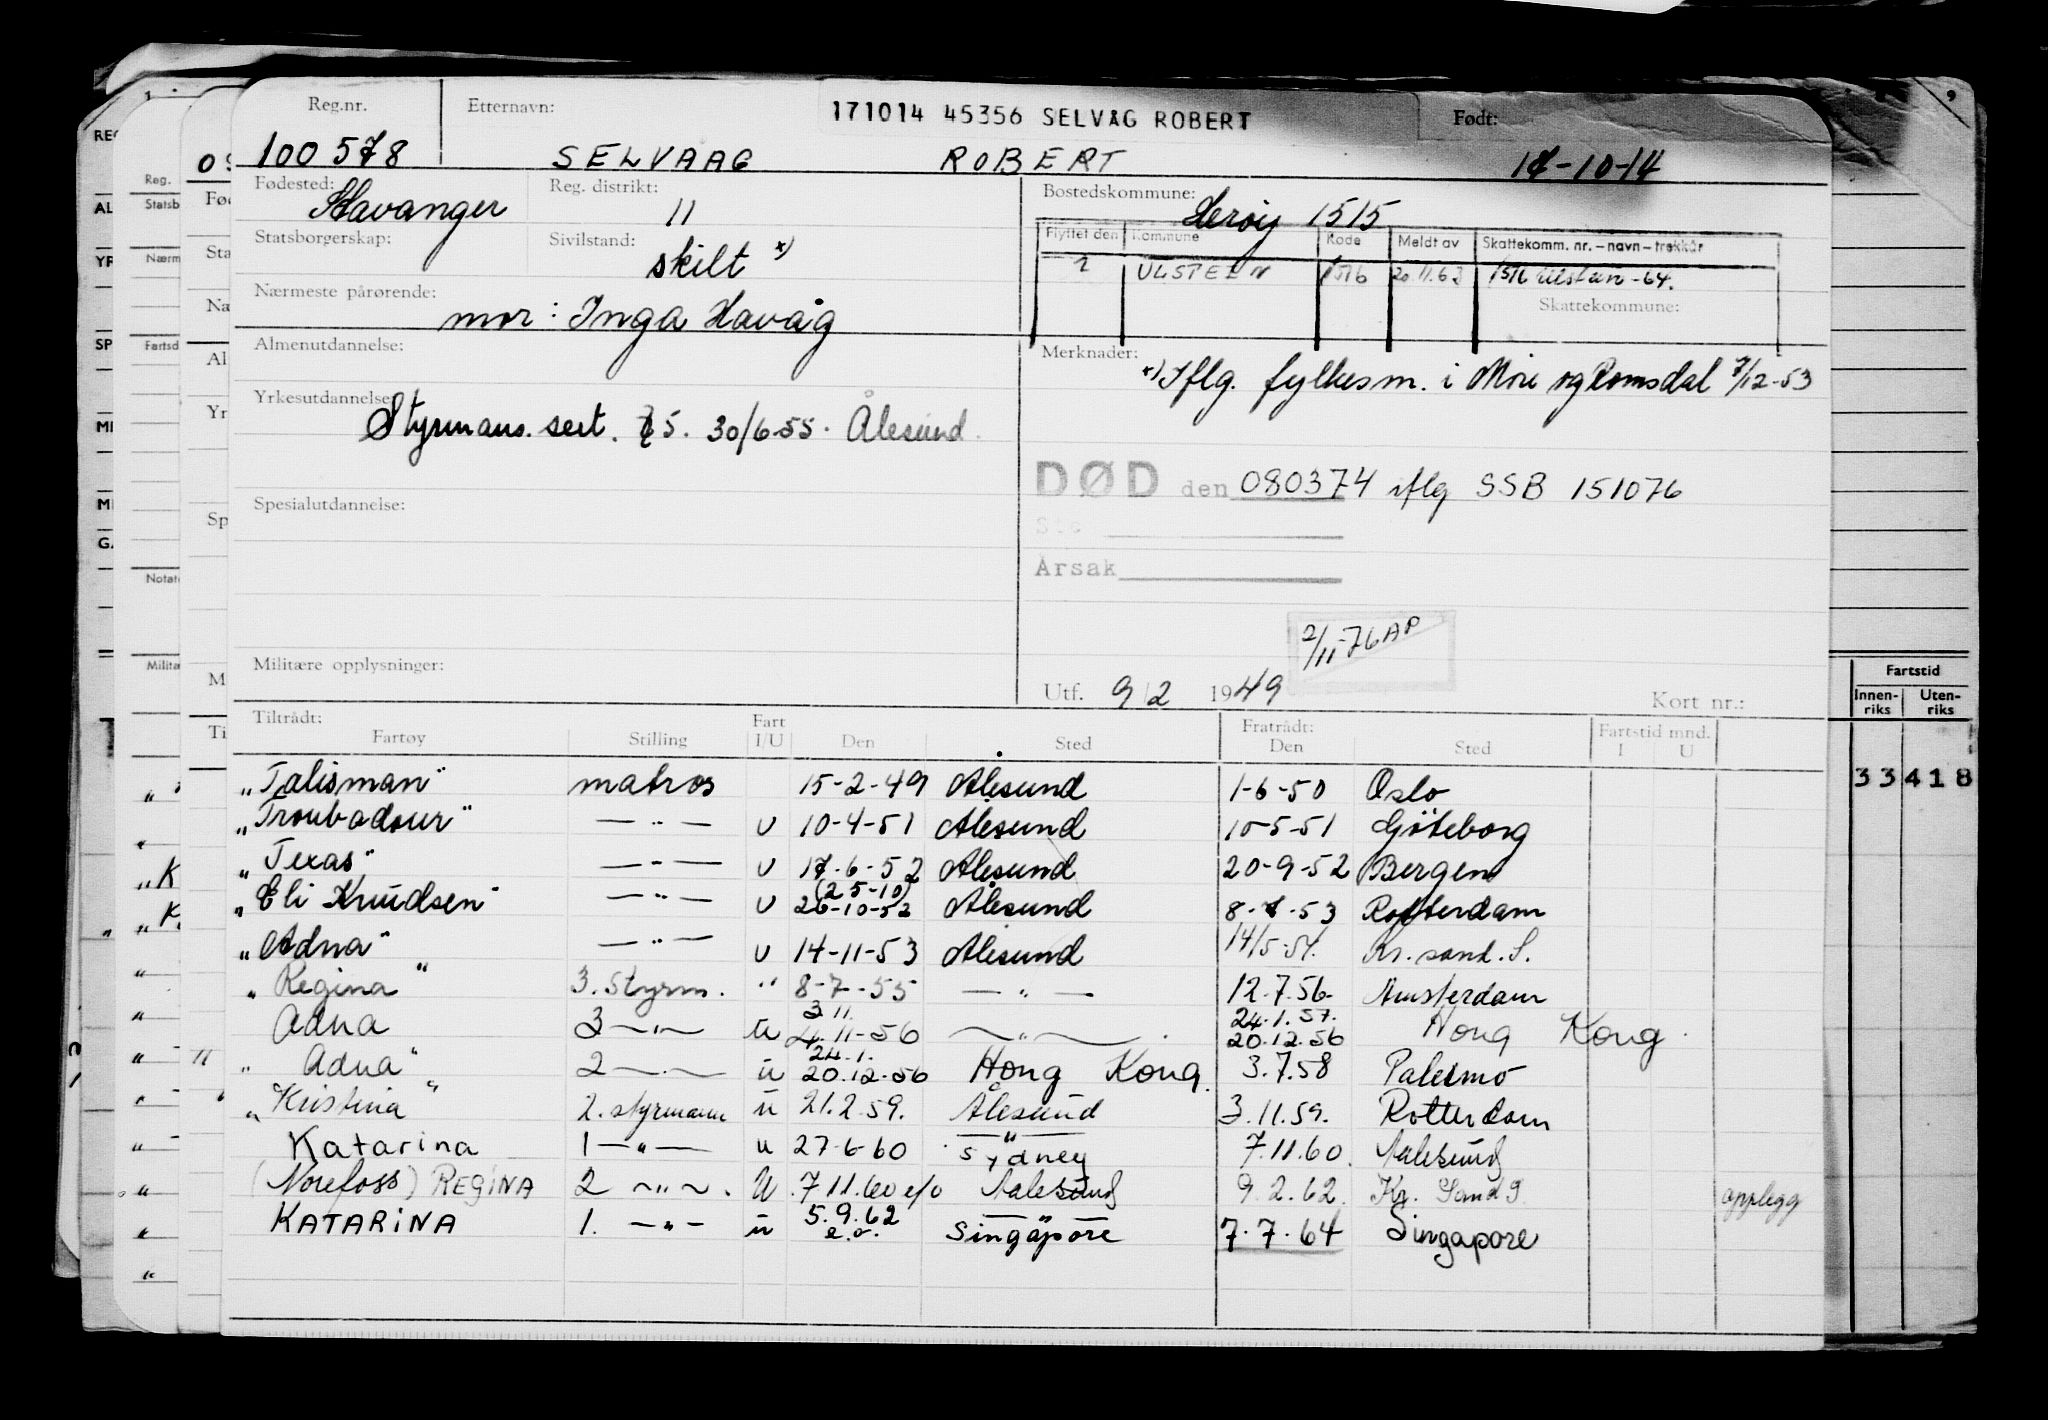 Reg.nr. Etternavn: 171014 45356 SELVÅG ROBERT Født:
100 578 SELVAAG ROBERT 17-10-14
Fødested: Stavanger Reg. distrikt: 11 Bostedskommune: Herøy 1515
Statsborgerskap: Sivilstand: skilt x)
Flyttet den Kommune Rode Meldt av Skattekomm. nr. – navn – trekkår
2 ULSTEIN 1516 20.11.63 1516 Ulstein -64.
Skattekommune:
Nærmeste pårørende: mor: Inga Havåg
Almenutdannelse:
Merknader: x) Iflg. fylkesm. i Møre og Romsdal 7/12-53
Yrkesutdannelse: Styrmans.sert. 30/6-55. Ålesund.
DØD den 080374 iflg SSB 151076
Spesialutdannelse:
Årsak
2/11-76 AP
Militære opplysninger:
Utf. 9/2 1949 Kort nr.:
Tiltrådt: Fart Fratrådt: Fartstid mnd.
Fartøy Stilling I/U Den Sted Den Sted I U
„Talisman" matros 15-2-49 Ålesund 1-6-50 Oslo
„Troubadour" —„— U 10-4-51 Ålesund 10-5-51 Göteborg
„Texas" —„— U 17-6-52 Ålesund 20-9-52 Bergen
(25-10)
„Eli Knudsen" —„— U 26-10-52 Ålesund 8- -53 Rotterdam
„Adna" —„— U 14-11-53 Ålesund 14/5-54. Kr.sand.S.
„Regina" 3. Styrm. " 8-7-55 —„— 12.7.56 Amsterdam
3.11 24.1.57.
Adna 3 —„— U 4.11-56 —„— 20.12.56 Hong Kong
24.1.
„Adna" 2 —„— U 20.12.56 Hong Kong. 3.7.58 Palermo
„Kristina" 2. styrmann U 21.2.59. Ålesund 3.11.59. Rotterdam
Katarina 1 —„— U 27-6-60 Sydney 7.11.60. Aalesund
(Norefoss) REGINA 2 —„— U 7.11.60 e/o Aalesund 9.2.62. Kr. Sand S. opplegg
KATARINA 1. —„— U 5.9.62 e.o. Singapore 7.7.64 Singapore
Fartstid
Innen-riks Uten-riks
33 418